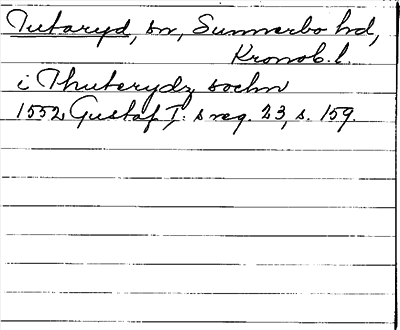 Tutaryd, sn, Sunnerbo hd,
Kronob. l.
i Thuterydz sochn
1552 Gustaf I:s reg. 23, s. 159.